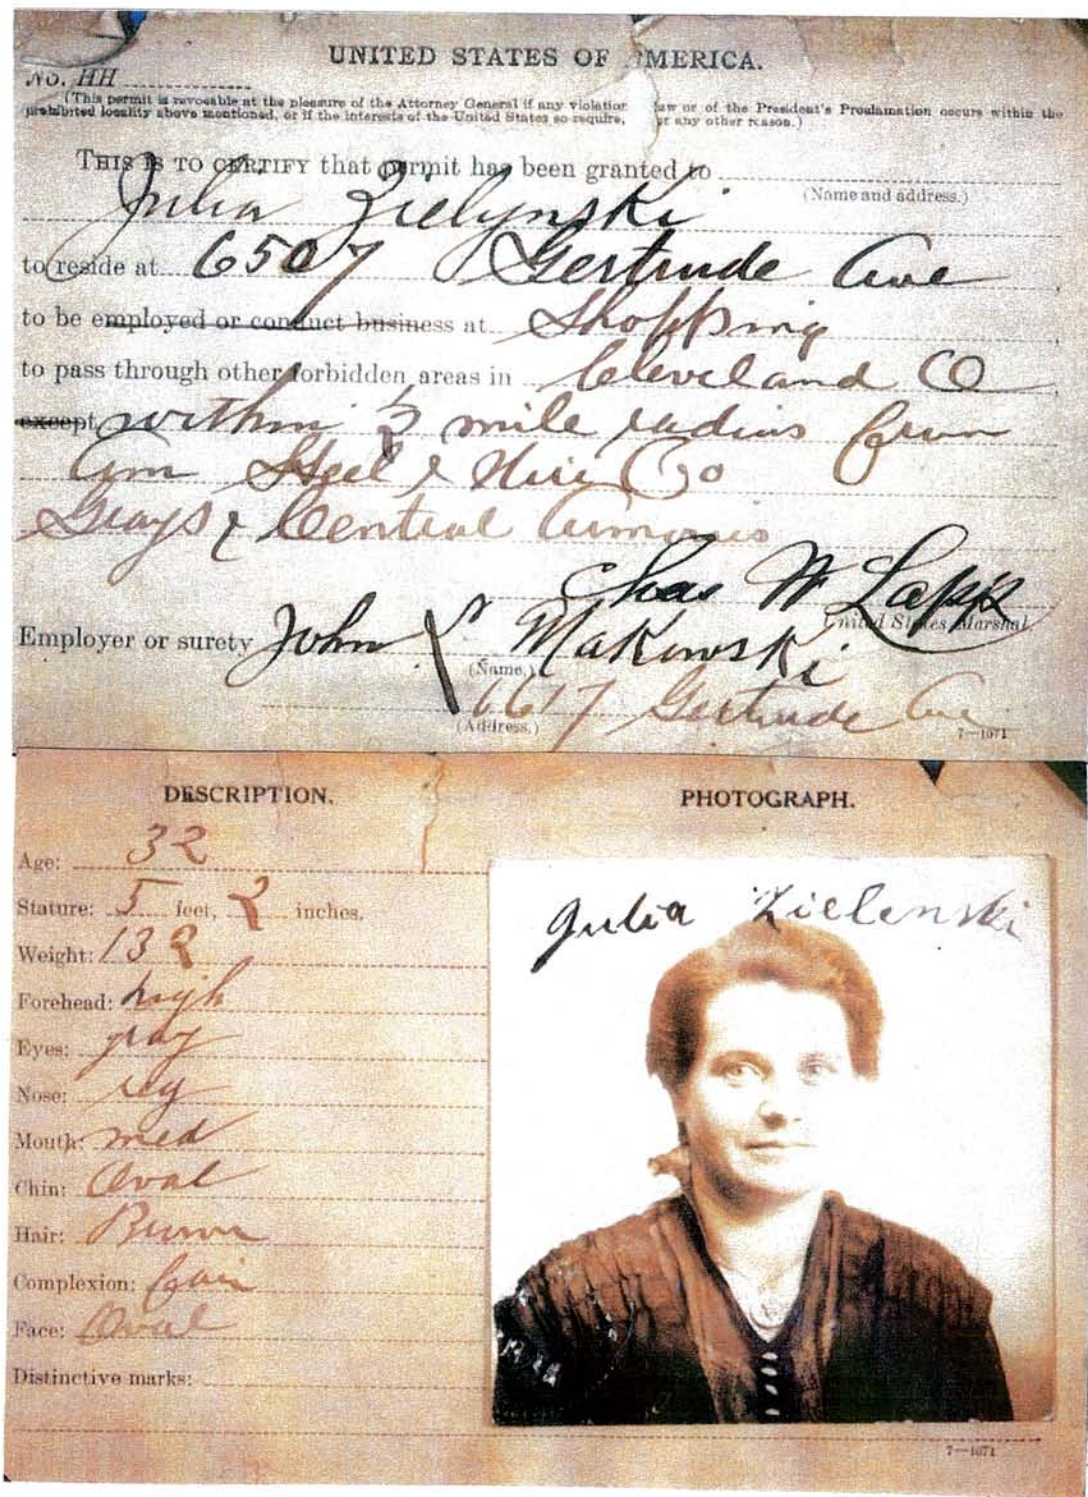 UNITED STATES OF AMERICA.
No. HH
(This permit is revocable at the pleasure of the Attorney General if any violation law or of the President's Proclamation occurs within the
prohibited locality above mentioned, or if the interests of the United States so require, or any other reason.)
THIS IS TO CERTIFY that permit has been granted to
(Name and address.)
Julia Zielynski
to reside at 6507 Gertrude Ave
to be employed or conduct business at Shopping
to pass through other forbidden areas in Cleveland O
except within 1/2 mile radius from
Am Steel & Wire Co
Grays & Central Armories
Chas W Lapp
United States Marshal.
Employer or surety John Makowski
(Name.)
6617 Gertrude Ave
(Address.)
7—1071
DESCRIPTION.
PHOTOGRAPH.
Age: 32
Stature: 5 feet, 2 inches.
Weight: 132
Forehead: high
Eyes: gray
Nose: reg
Mouth: med
Chin: Oval
Hair: Brown
Complexion: fair
Face: Oval
Distinctive marks:
Julia Zielenski
7—1071